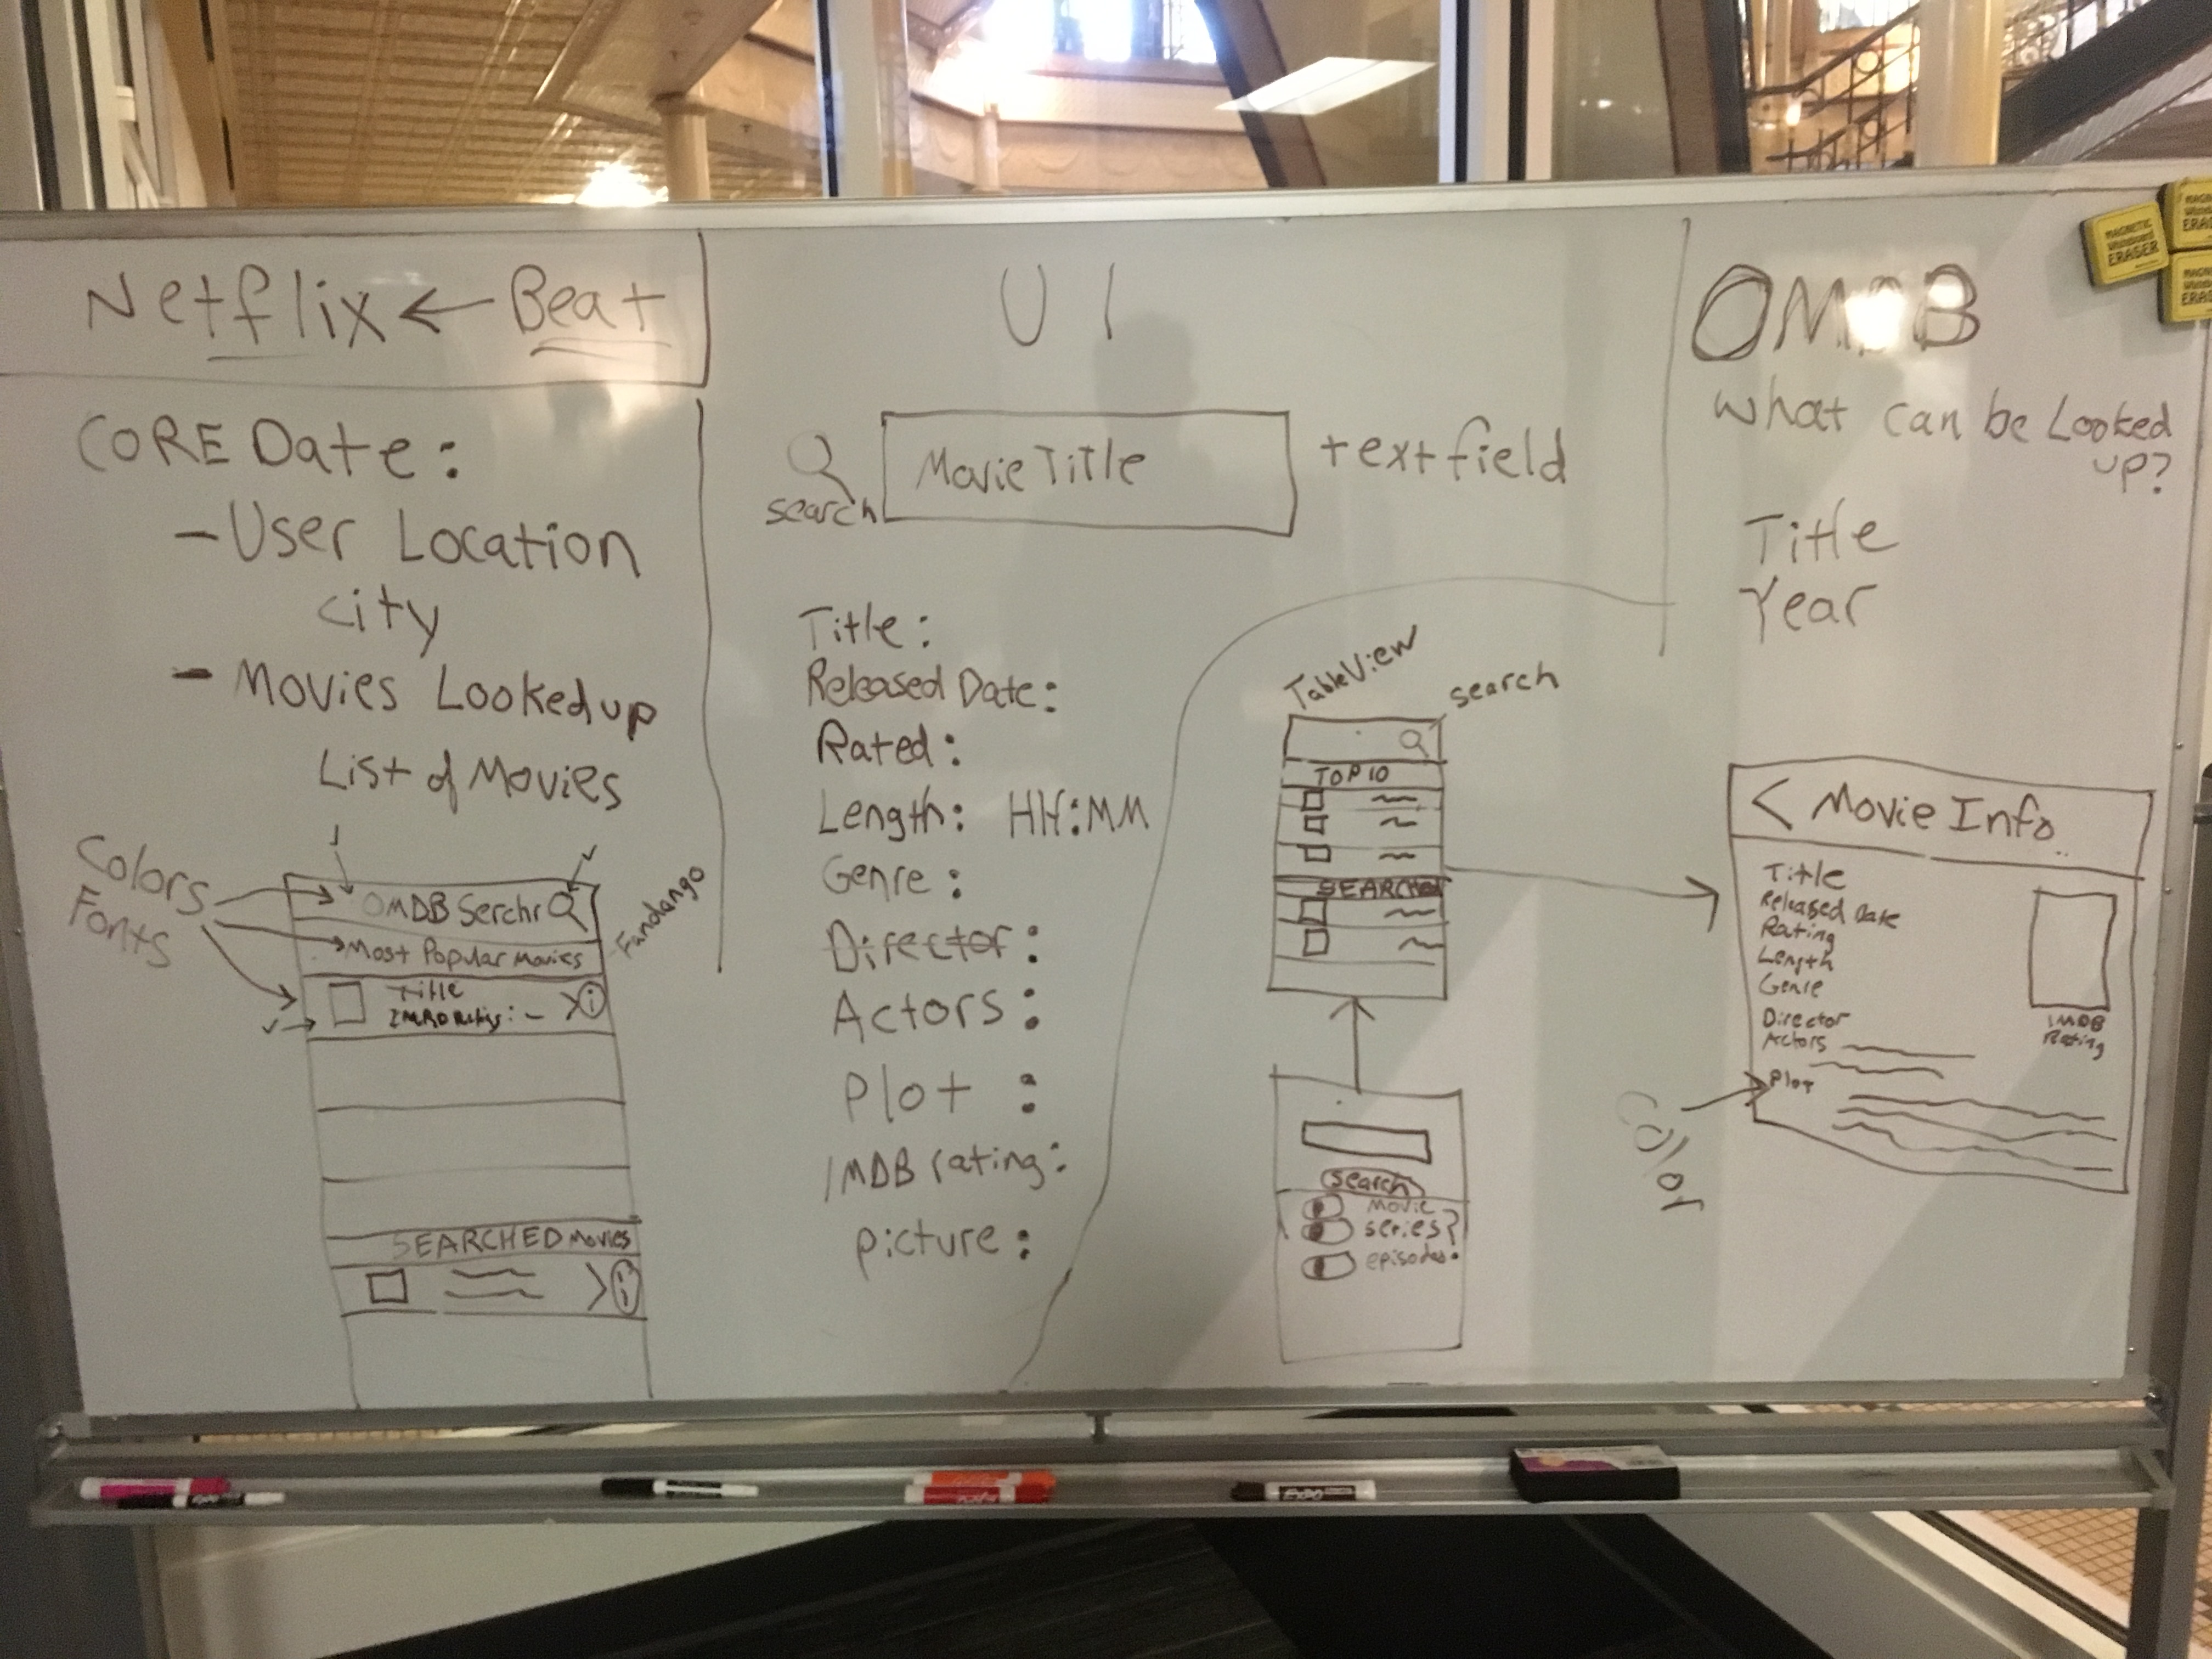 Netflix ← Beat
CORE Date:
- User Location
city
- Movies Lookedup
List of Movies
Colors
Fonts
OMDB Serchr
Most Popular Movies
Fandango
Title
IMBD Rating: -
SEARCHED Movies
UI
search
Movie Title
textfield
Title:
Released Date:
Rated:
Length: HH:MM
Genre:
Director:
Actors:
Plot :
IMDB rating:
picture:
TableView
search
TOP 10
SEARCHED
search
Movie
series?
episodes.
OMDB
What can be Looked
up?
Title
Year
< Movie Info
Title
Released Date
Rating
Length
Genre
Director
Actors
Plot
IMDB
Rating
Color
MAGNETIC
Whiteboard
ERASER
EXPO